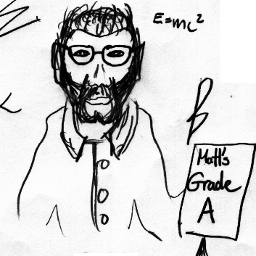 E=mc²
Matt's
Grade
A